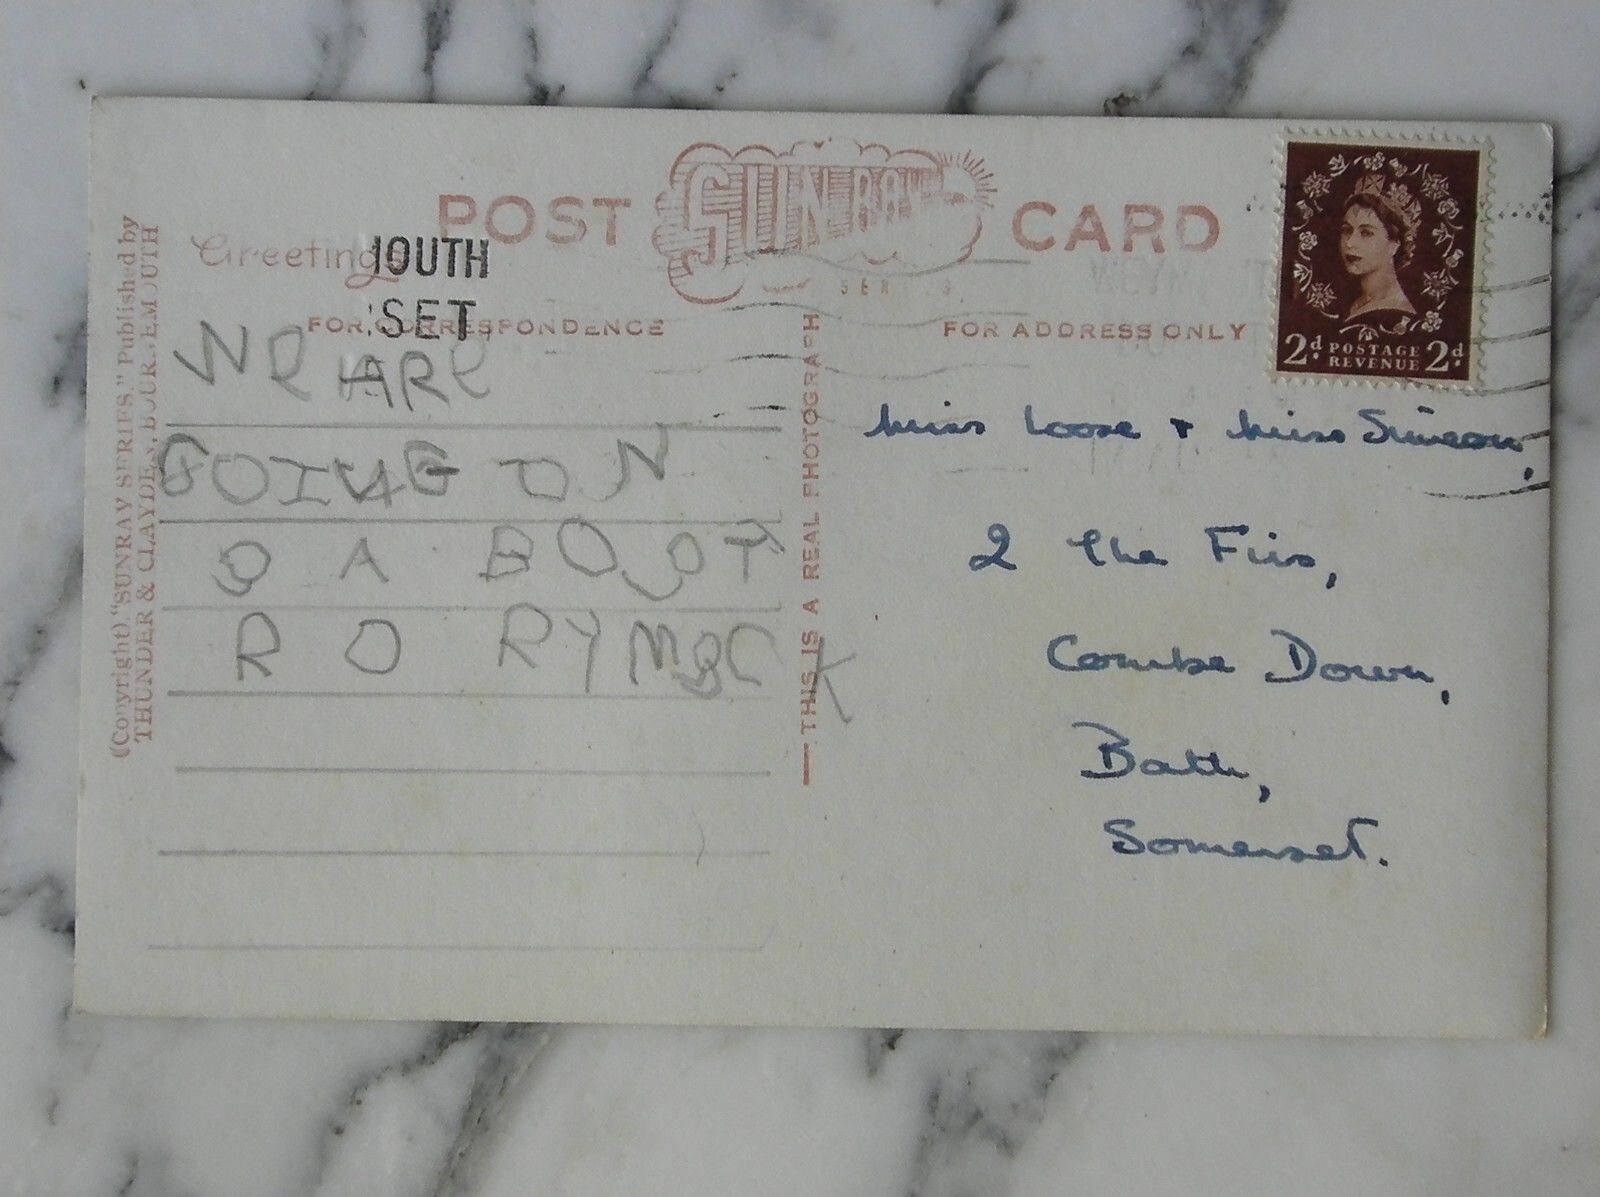 POST SUNRAY CARD
SERIES
Greetings
FOR CORRESPONDENCE
FOR ADDRESS ONLY
OUTH
SET
2d. POSTAGE 2d.
REVENUE
We ARe
GOING ON
A BOOT
RORY MBCK
Miss Loose + Miss Simeon,
2 The Firs,
Combe Down,
Bath,
Somerset.
THIS IS A REAL PHOTOGRAPH
(Copyright). "SUNRAY SERIES." Published by
THUNDER & CLAYDEN, BOURNEMOUTH